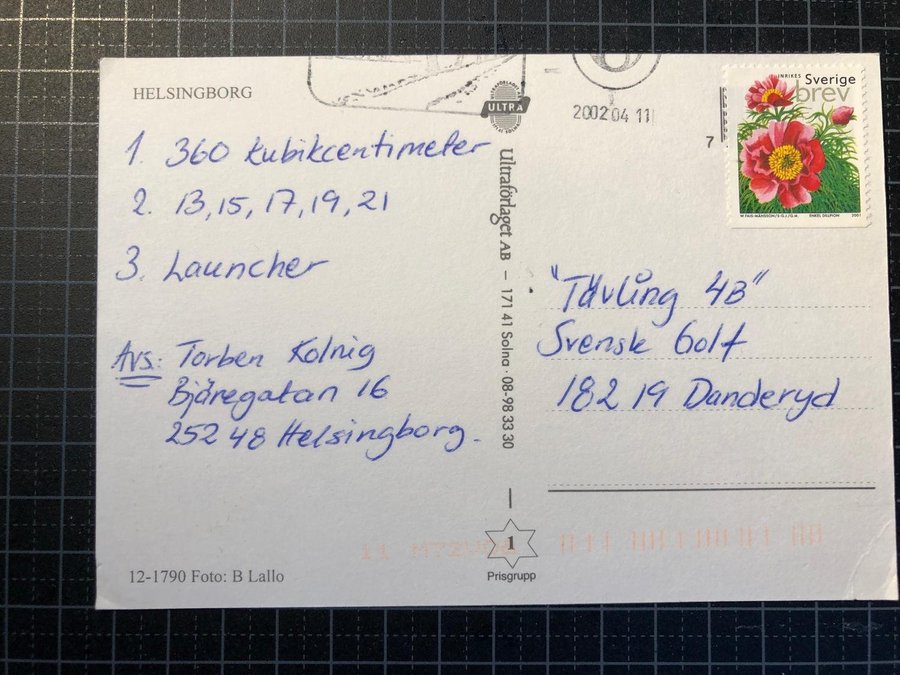 HELSINGBORG
1. 360 kubikcentimeter
2. 13, 15, 17, 19, 21
3. Launcher
Avs: Torben Kolnig
Bjäregatan 16
252 48 Helsingborg.
12-1790 Foto: B Lallo
ULTRA
Ultraförlaget AB – 171 41 Solna · 08-98 33 30
1
Prisgrupp
2002 04 11
7
INRIKES Sverige
brev
ENKEL DILLPION 2001
"Tävling 4B"
Svensk Golf
182 19 Danderyd